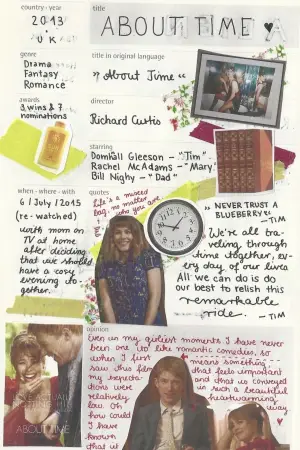 country · year
2013
UK
title
ABOUT TIME
genre
Drama
Fantasy
Romance
title in original language
"About Time"
awards
3 wins & 7
nominations
director
Richard Curtis
starring
Domhall Gleeson - "Tim"
Rachel McAdams - "Mary"
Bill Nighy - "Dad"
when · where · with
6 / July / 2015
(re-watched)
with mom on
TV at home
after deciding
that we should
have a cosy
evening to-
gether.
quotes
Life's a mixed
bag, no matter
who you are
"NEVER TRUST A
BLUEBERRY"
- TIM
We're all tra-
veling through
time together, ev-
ery day of our lives.
All we can do is do
our best to relish this
remarkable
ride. - TIM
opinion
Even in my girliest moments I have never
been one to like romantic comedies, so
when I first
saw this film
my expecta-
tions were
relatively
low. Oh
how could
I have
known
that it
means something -
that feels important
and that is conveyed
in such a beautiful
heartwarming
way.
ABOUT TIME